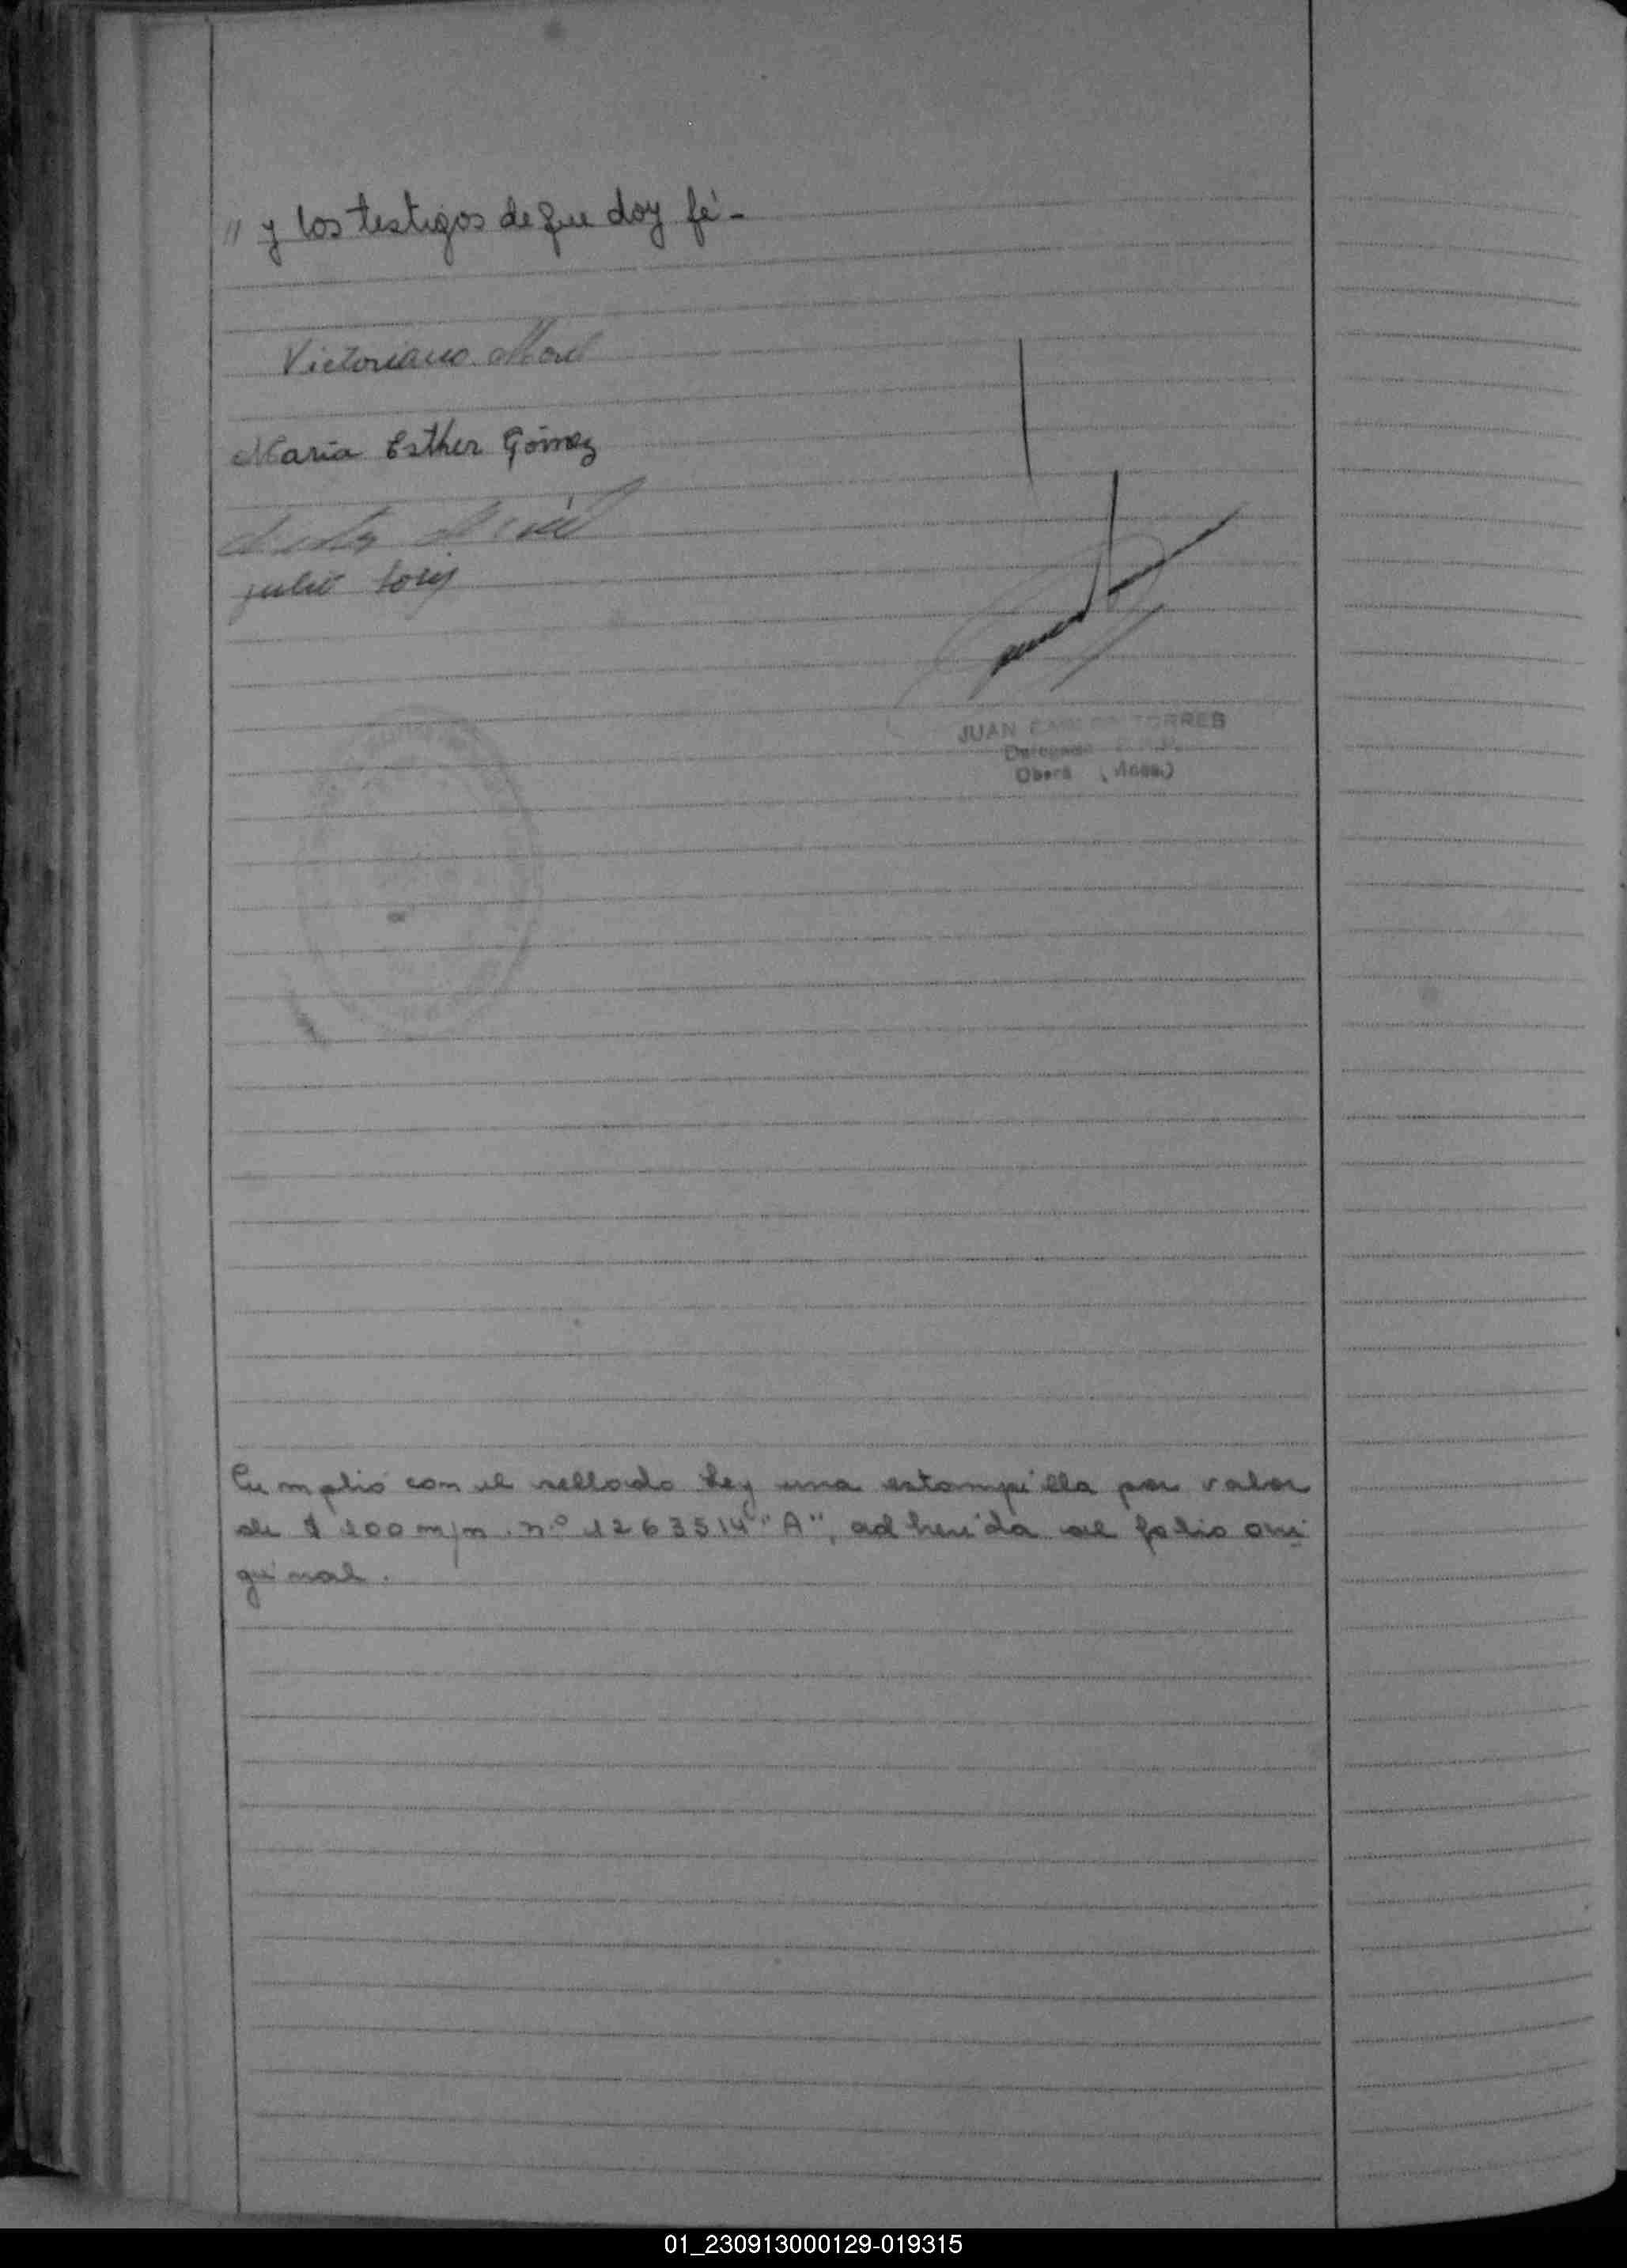 " y los testigos de que doy fé-
Victoriano
Maria Esther Gómez
julio
JUAN TORRES
Oberá
Cumplió con el sellado Ley una estampilla por valor
de $ 100 m/n. n.º 1263514 "A", adherida al folio ori
ginal.
01_230913000129-019315